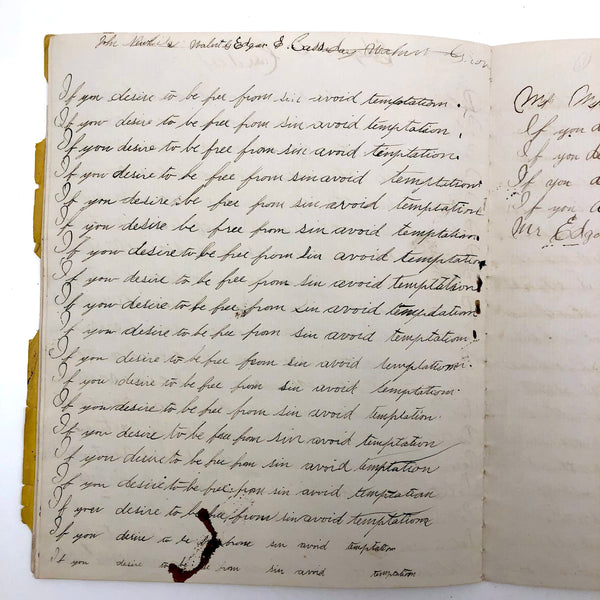 John Walnut Edgar E. Cassday Walnut
If you desire to be free from sin avoid temptation.
If you desire to be free from sin avoid temptation.
If you desire to be free from sin avoid temptation.
If you desire to be free from sin avoid temptation
If you desire be free from sin avoid temptation.
If you desire be free from sin avoid temptation.
If you desire to be free from sin avoid temptation
If you desire to be free from sin avoid temptation
If you desire to be free from sin avoid temptation
If you desire to be free from sin avoid temptation.
If you desire to be free from sin avoid temptation.
If you desire to be free from sin avoid temptation.
If you desire to be free from sin avoid temption.
If you desire to be free from sin avoid temptation
If you desire to be free from sin avoid temptation
If you desire to be free from sin avoid temptation
If your desire to be free from sin avoid temptation
If you desire to be from sin avoid temptation
If you desire to be from sin avoid temptation
Mr
If you d
If you de
If you a
If you a
Mr Edga